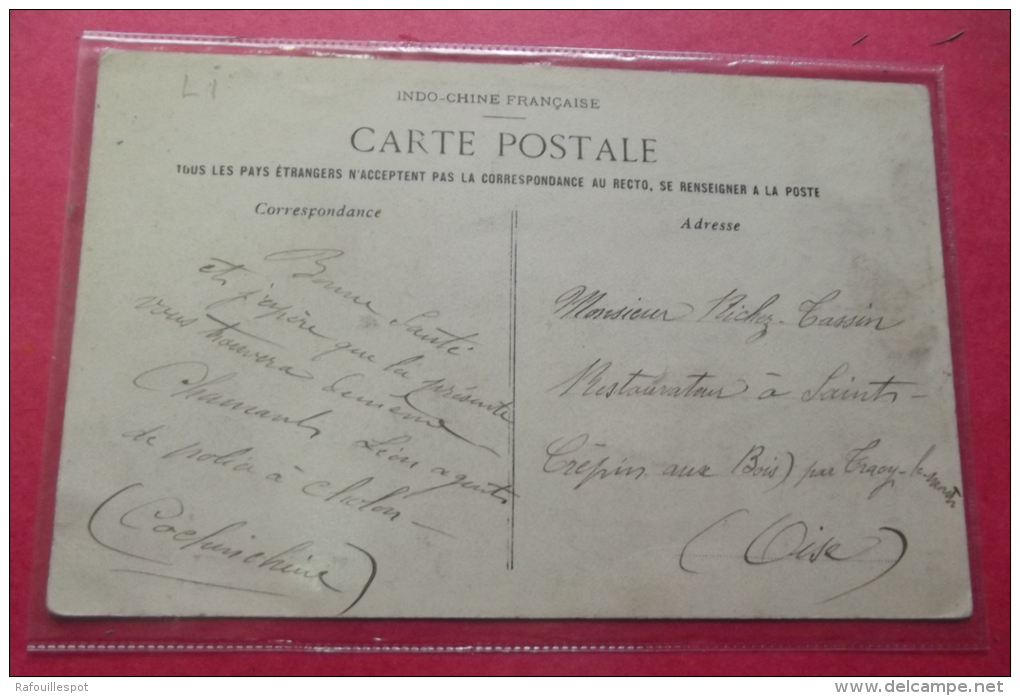 L I
INDO-CHINE FRANÇAISE
CARTE POSTALE
TOUS LES PAYS ÉTRANGERS N'ACCEPTENT PAS LA CORRESPONDANCE AU RECTO, SE RENSEIGNER A LA POSTE
Correspondance
Bonne Santé
et j'espère que la présente
vous trouvera de même
Chamant Léon agent
de police à Cholon
(Cochinchine)
Adresse
Monsieur Richez-Cassin
Restaurateur à Saint-
Crépin aux Bois) par Tracy-le-Mont
(Oise)
Rafouillespot
www.delcampe.net